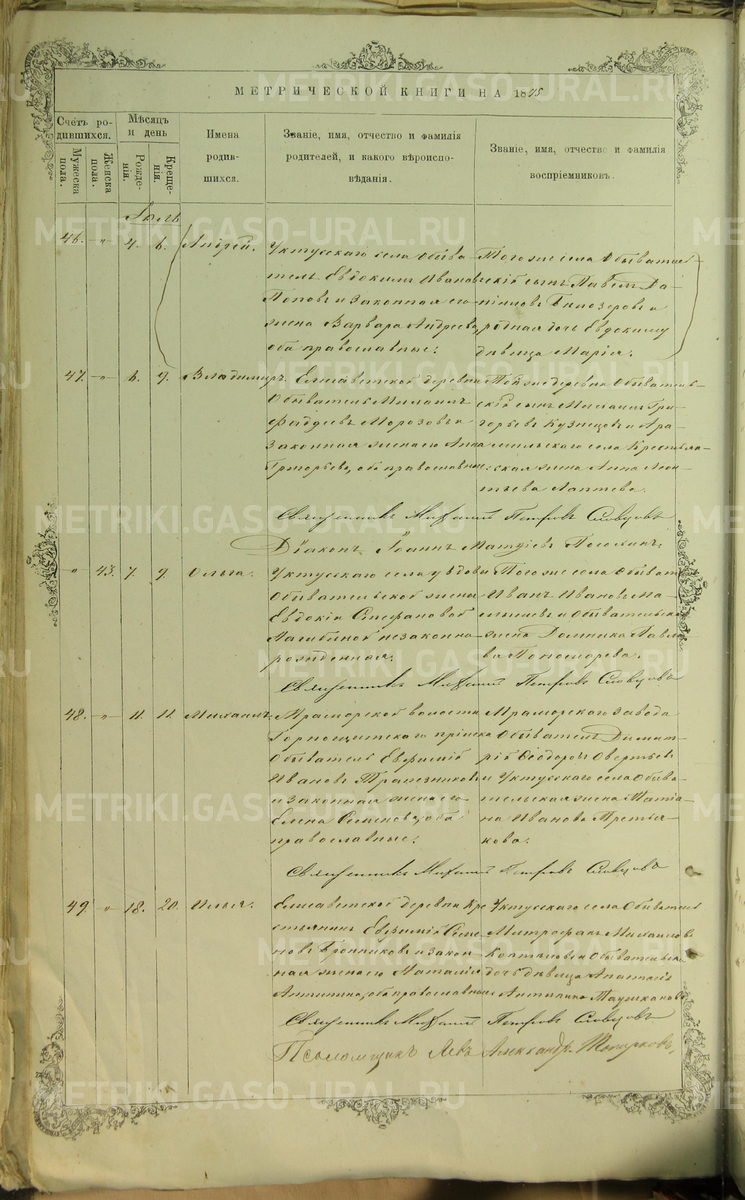 МЕТРИЧЕСКОЙ КНИГИ НА 18
Счетъ ро-
дившихся.
Мужеска
пола.
Женска
пола.
Мѣсяцъ
и день
Рожде-
нія.
Креще-
нія.
Имена
родив-
шихся.
Званіе, имя, отчество и фамилія
родителей, и какого вѣроиспо-
вѣданія.
Званіе, имя, отчество и фамилія
воспріемниковъ.
Іюль
46. -"- 4. 6. Андрей.
Уктусскаго села Обыва-
тель Евдокимъ Ивановъ
Поповъ и законная его
жена Варвара Андреева,
оба православные.
Того же села Обыватель-
скій сынъ Павелъ
и
родная дочь Евдокиму
дѣвица Марія.
47. -"- 6. 9. Владимиръ.
Елисаветской деревни
Обыватель Михаилъ
Фадѣевъ Морозовъ и
законная жена его Анна
Григорьева, оба православные.
Той же деревни Обыватель-
скій сынъ Михаилъ Гри-
горьевъ Кузнецовъ и Ара-
мильскаго села Крестьян-
ская жена Анна Леон-
тьева Лаптева.
Священникъ Михаилъ Петровъ Словцовъ
Діаконъ Іоаннъ Матвѣевъ
" 43. 7. 9. Ольга.
Уктусскаго села у вдовы
Обывательской жены
Евдокіи Стефановой
незаконно-
рожденная.
Того же села Обыват.
Иванъ Ивановъ Ма-
и Обывательская
жена Домника Павло-
ва Пономарева.
Священникъ Михаилъ Петровъ Словцовъ
48. -"- 11. 11. Михаилъ.
Мраморской волости
Горнощитскаго
Обыватель Евфимій
Ивановъ Трапезниковъ
и законная жена его
Елена Семеновна, оба
православные.
Мраморскаго Завода
Обыватель Димит-
рій Ѳеодоровъ
и Уктусскаго села Обыва-
тельская жена Татіа-
на Иванова Третья-
кова.
Священникъ Михаилъ Петровъ Словцовъ
49. " 18. 20. Илья.
Елисаветской деревни Кре-
стьянинъ Евфимій Семе-
новъ Бронниковъ и закон-
ная жена его Наталія
Антипина, оба православные
Уктусскаго села Обыватель
Митрофанъ Михаиловъ
и Обывательская
дочь дѣвица Анастасія
Антипина
Священникъ Михаилъ Петровъ Словцовъ
Псаломщикъ Левъ Александр.
METRIKI.GASO-URAL.RU
METRIKI.GASO-URAL.RU
METRIKI.GASO-URAL.RU
METRIKI.GASO-URAL.RU
METRIKI.GASO-URAL.RU
METRIKI.GASO-URAL.RU
METRIKI.GASO-URAL.RU